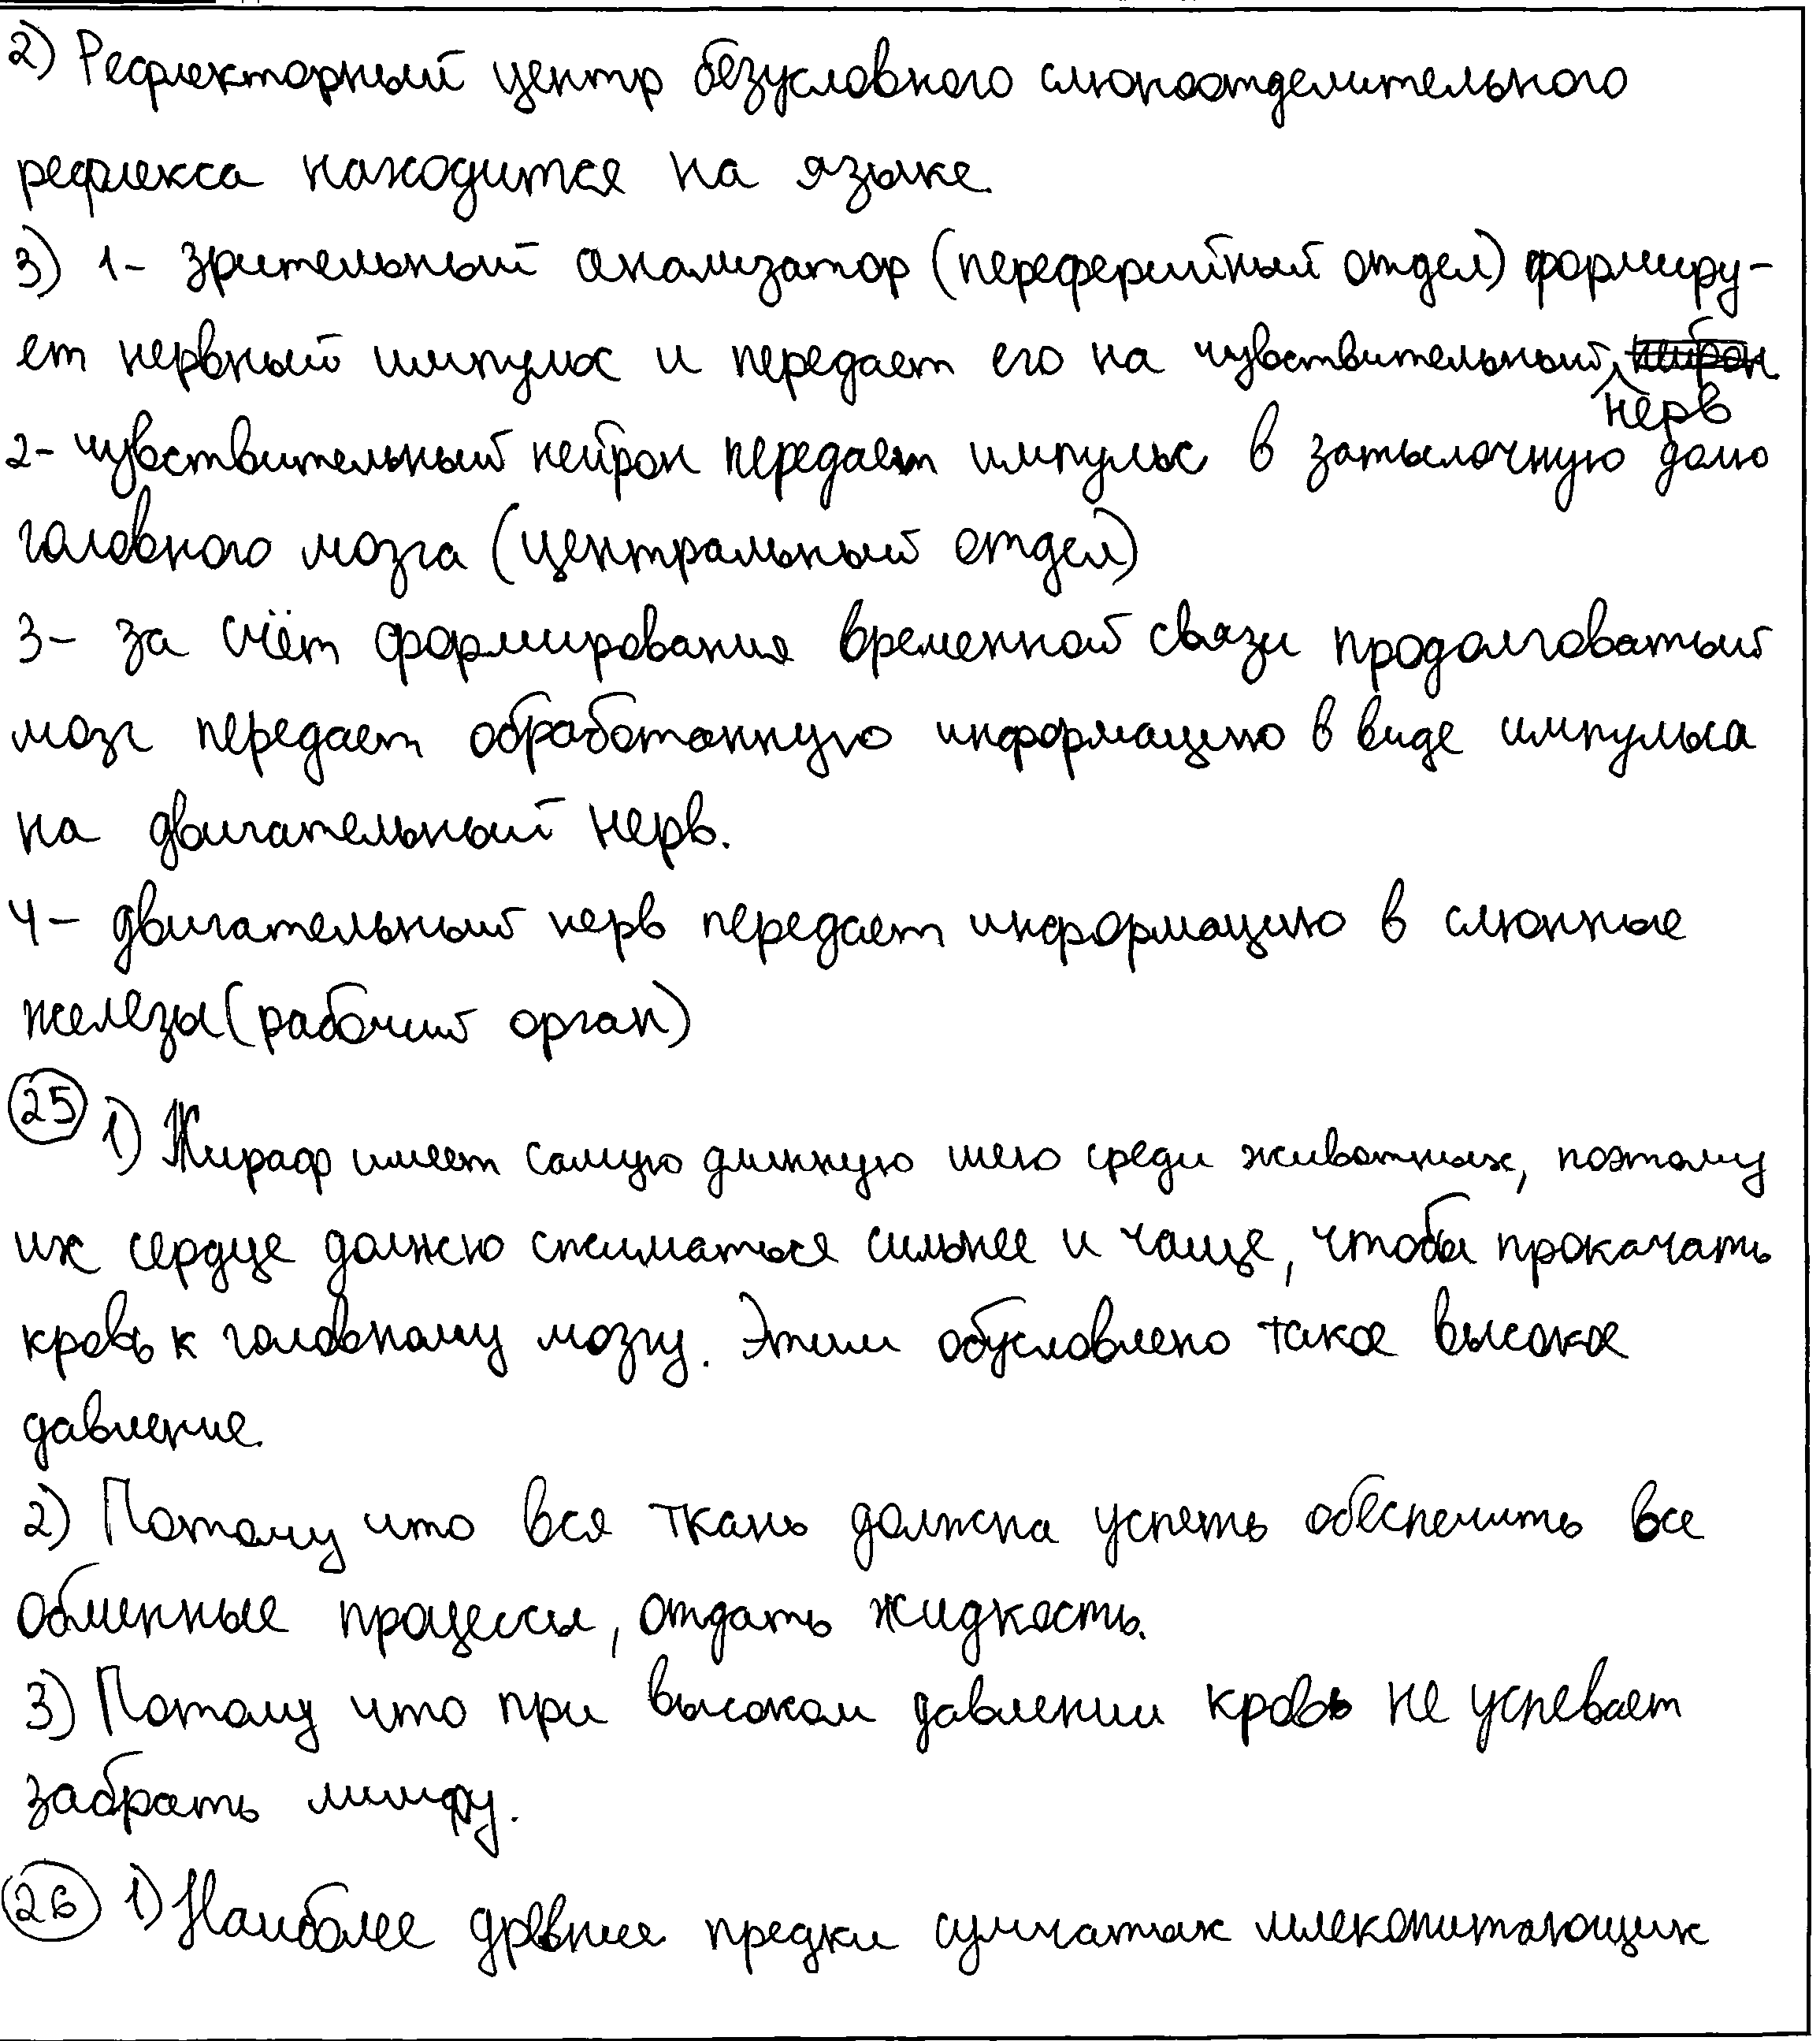 2) Рефлекторный центр безусловного слюноотделительного
рефлекса находится на языке.
3) 1- зрительный анализатор (переферийный отдел) формиру-
ет нервный импульс и передает его на чувствительный нейрон
нерв
2- чувствительный нейрон передает импульс в затылочную долю
головного мозга (центральный отдел)
3- за счёт формирования временной связи продолговатый
мозг передает обработанную информацию в виде импульса
на двигательный нерв.
4- двигательный нерв передает информацию в слюнные
железы (рабочий орган)
25 1) Жираф имеет самую длинную шею среди животных, поэтому
их сердце должно сжиматься сильнее и чаще, чтобы прокачать
кровь к головному мозгу. Этим обусловлено такое высокое
давление.
2) Потому что вся ткань должна успеть обеспечить все
обменные процессы, отдать жидкость.
3) Потому что при высоком давлении кровь не успевает
забрать лимфу.
26 1) Наиболее древние предки сумчатых млекопитающих